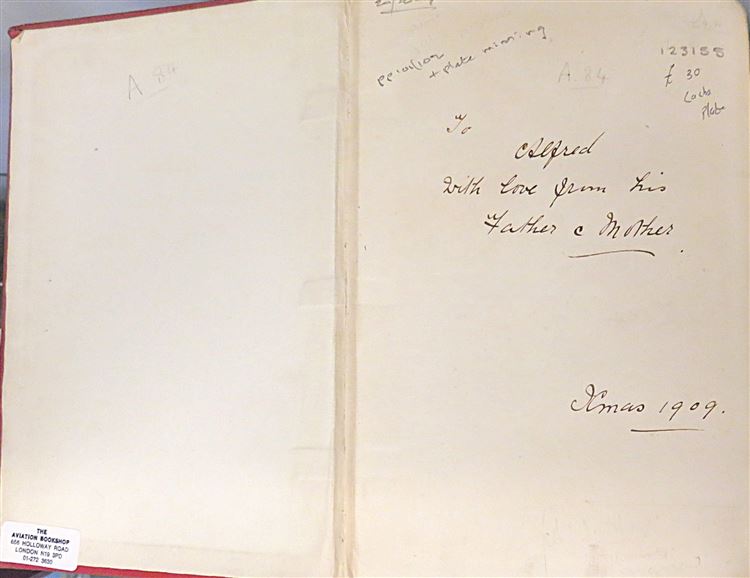 A 84
THE
AVIATION BOOKSHOP
656 HOLLOWAY ROAD
LONDON N19 3PD
01-272 3630
+ plate missing
A. 84
123155
£ 30
Lacks
plate
To
Alfred
With love from his
Father & Mother
Xmas 1909.